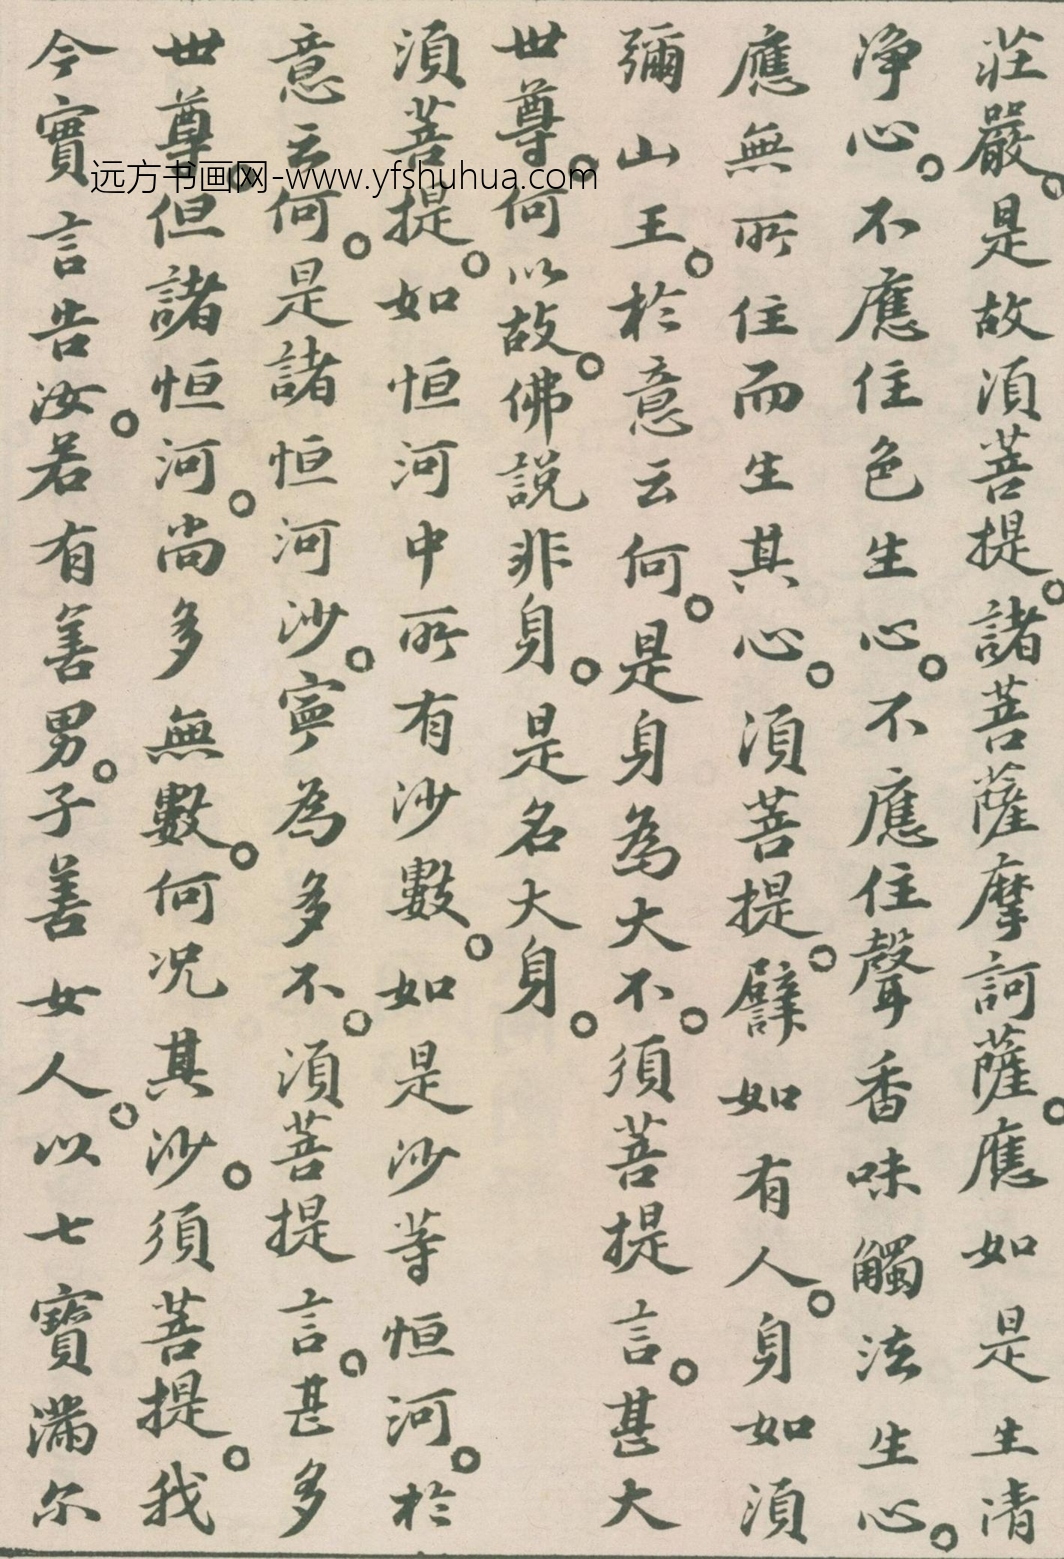 莊嚴。是故須菩提。諸菩薩摩訶薩。應如是生清
淨心。不應住色生心。不應住聲香味觸法生心。
應無所住而生其心。須菩提。譬如有人。身如須
彌山王。於意云何。是身為大不。須菩提言。甚大
世尊。何以故。佛說非身。是名大身。
須菩提。如恒河中所有沙數。如是沙等恒河。於
意云何。是諸恒河沙。寧為多不。須菩提言。甚多
世尊。但諸恒河。尚多無數。何況其沙。須菩提。我
今實言告汝。若有善男。子善女人。以七寶滿尔
远方书画网-www.yfshuhua.com